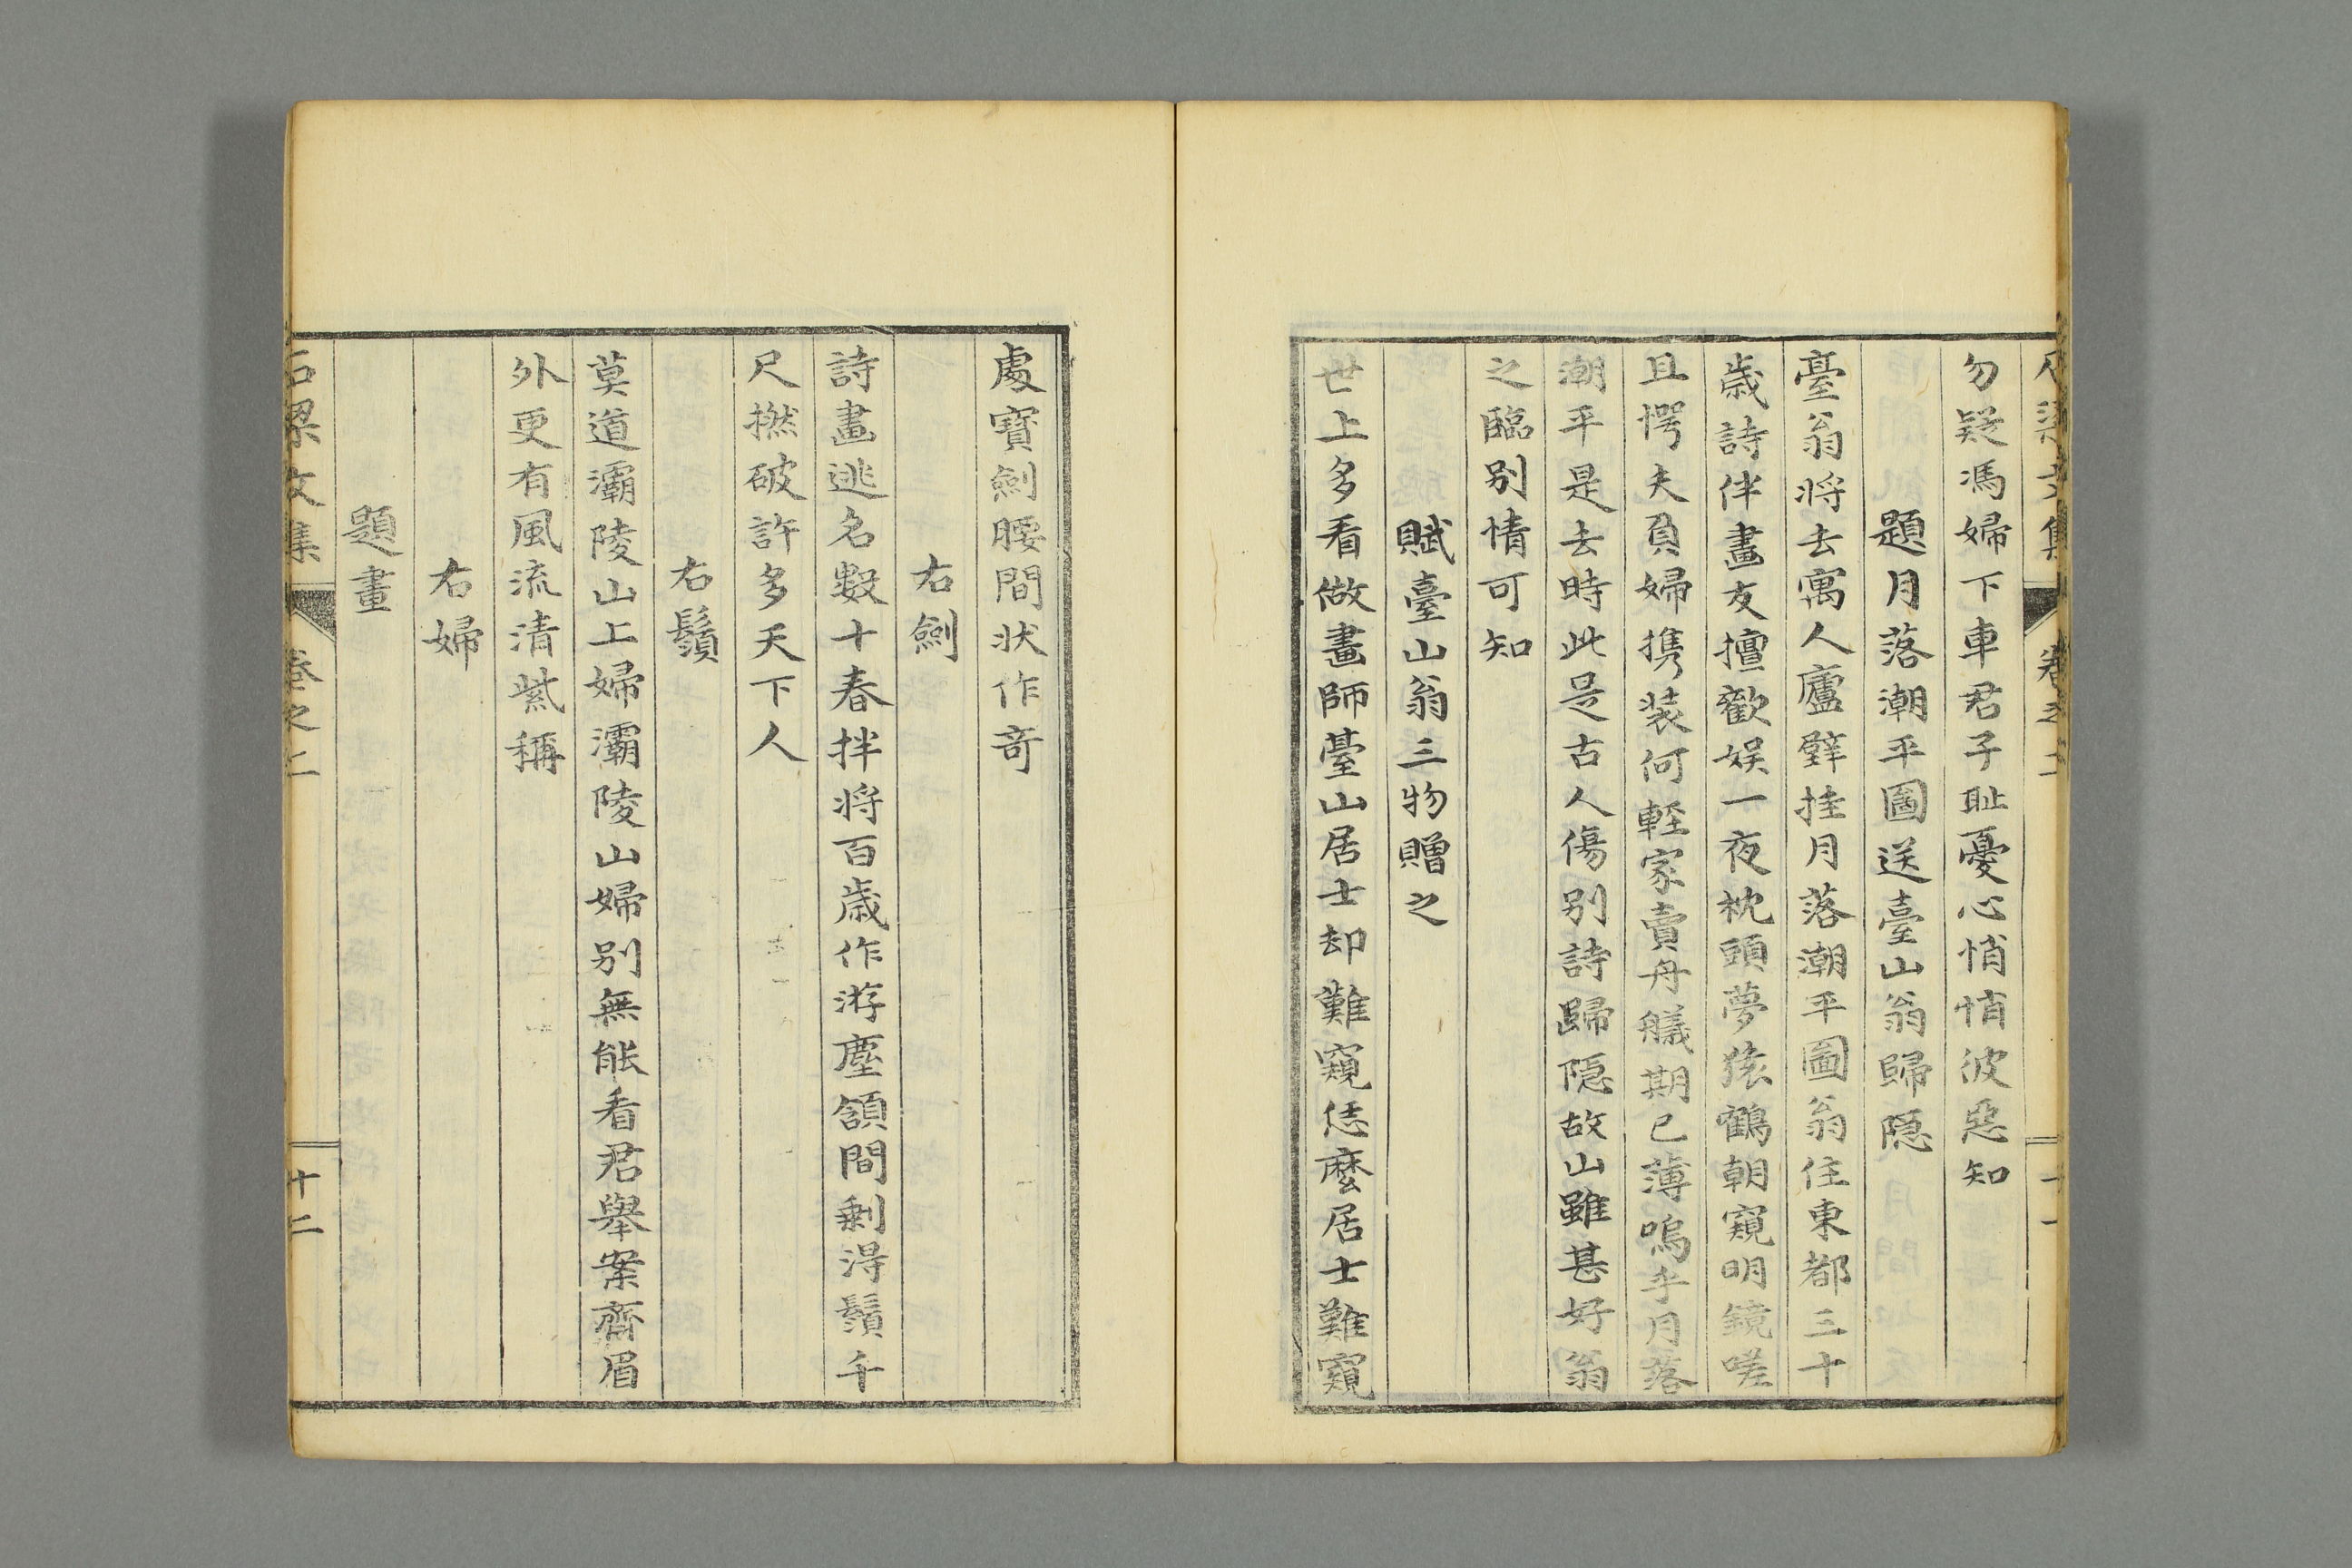 勿疑馮婦下車君子耻憂心悄悄彼惡知
題月落潮平圖送臺山翁歸隠
臺翁将去寓人廬壁挂月落潮平圖翁住東都三十
歳詩伴畫友擅歡娯一夜枕頭夢猿鶴朝窺明鏡嗟
且愕夫負婦携装何軽家賣舟艤期已薄嗚乎月落
潮平是去時此是古人傷别詩歸隠故山雖甚好翁
之臨别情可知
賦臺山翁三物贈之
世上多看做畫師臺山居士却難窺恁麼居士難窺
處寳劍腰間状作奇
右劍
詩畫逃名數十春拌将百歳作游塵頷間剰得鬚千
尺撚破許多天下人
右鬚
莫道灞陵山上婦灞陵山婦别無能看君舉案齊眉
外更有風流清紫稱
右婦
題畫
石梁文集
卷之二
十二